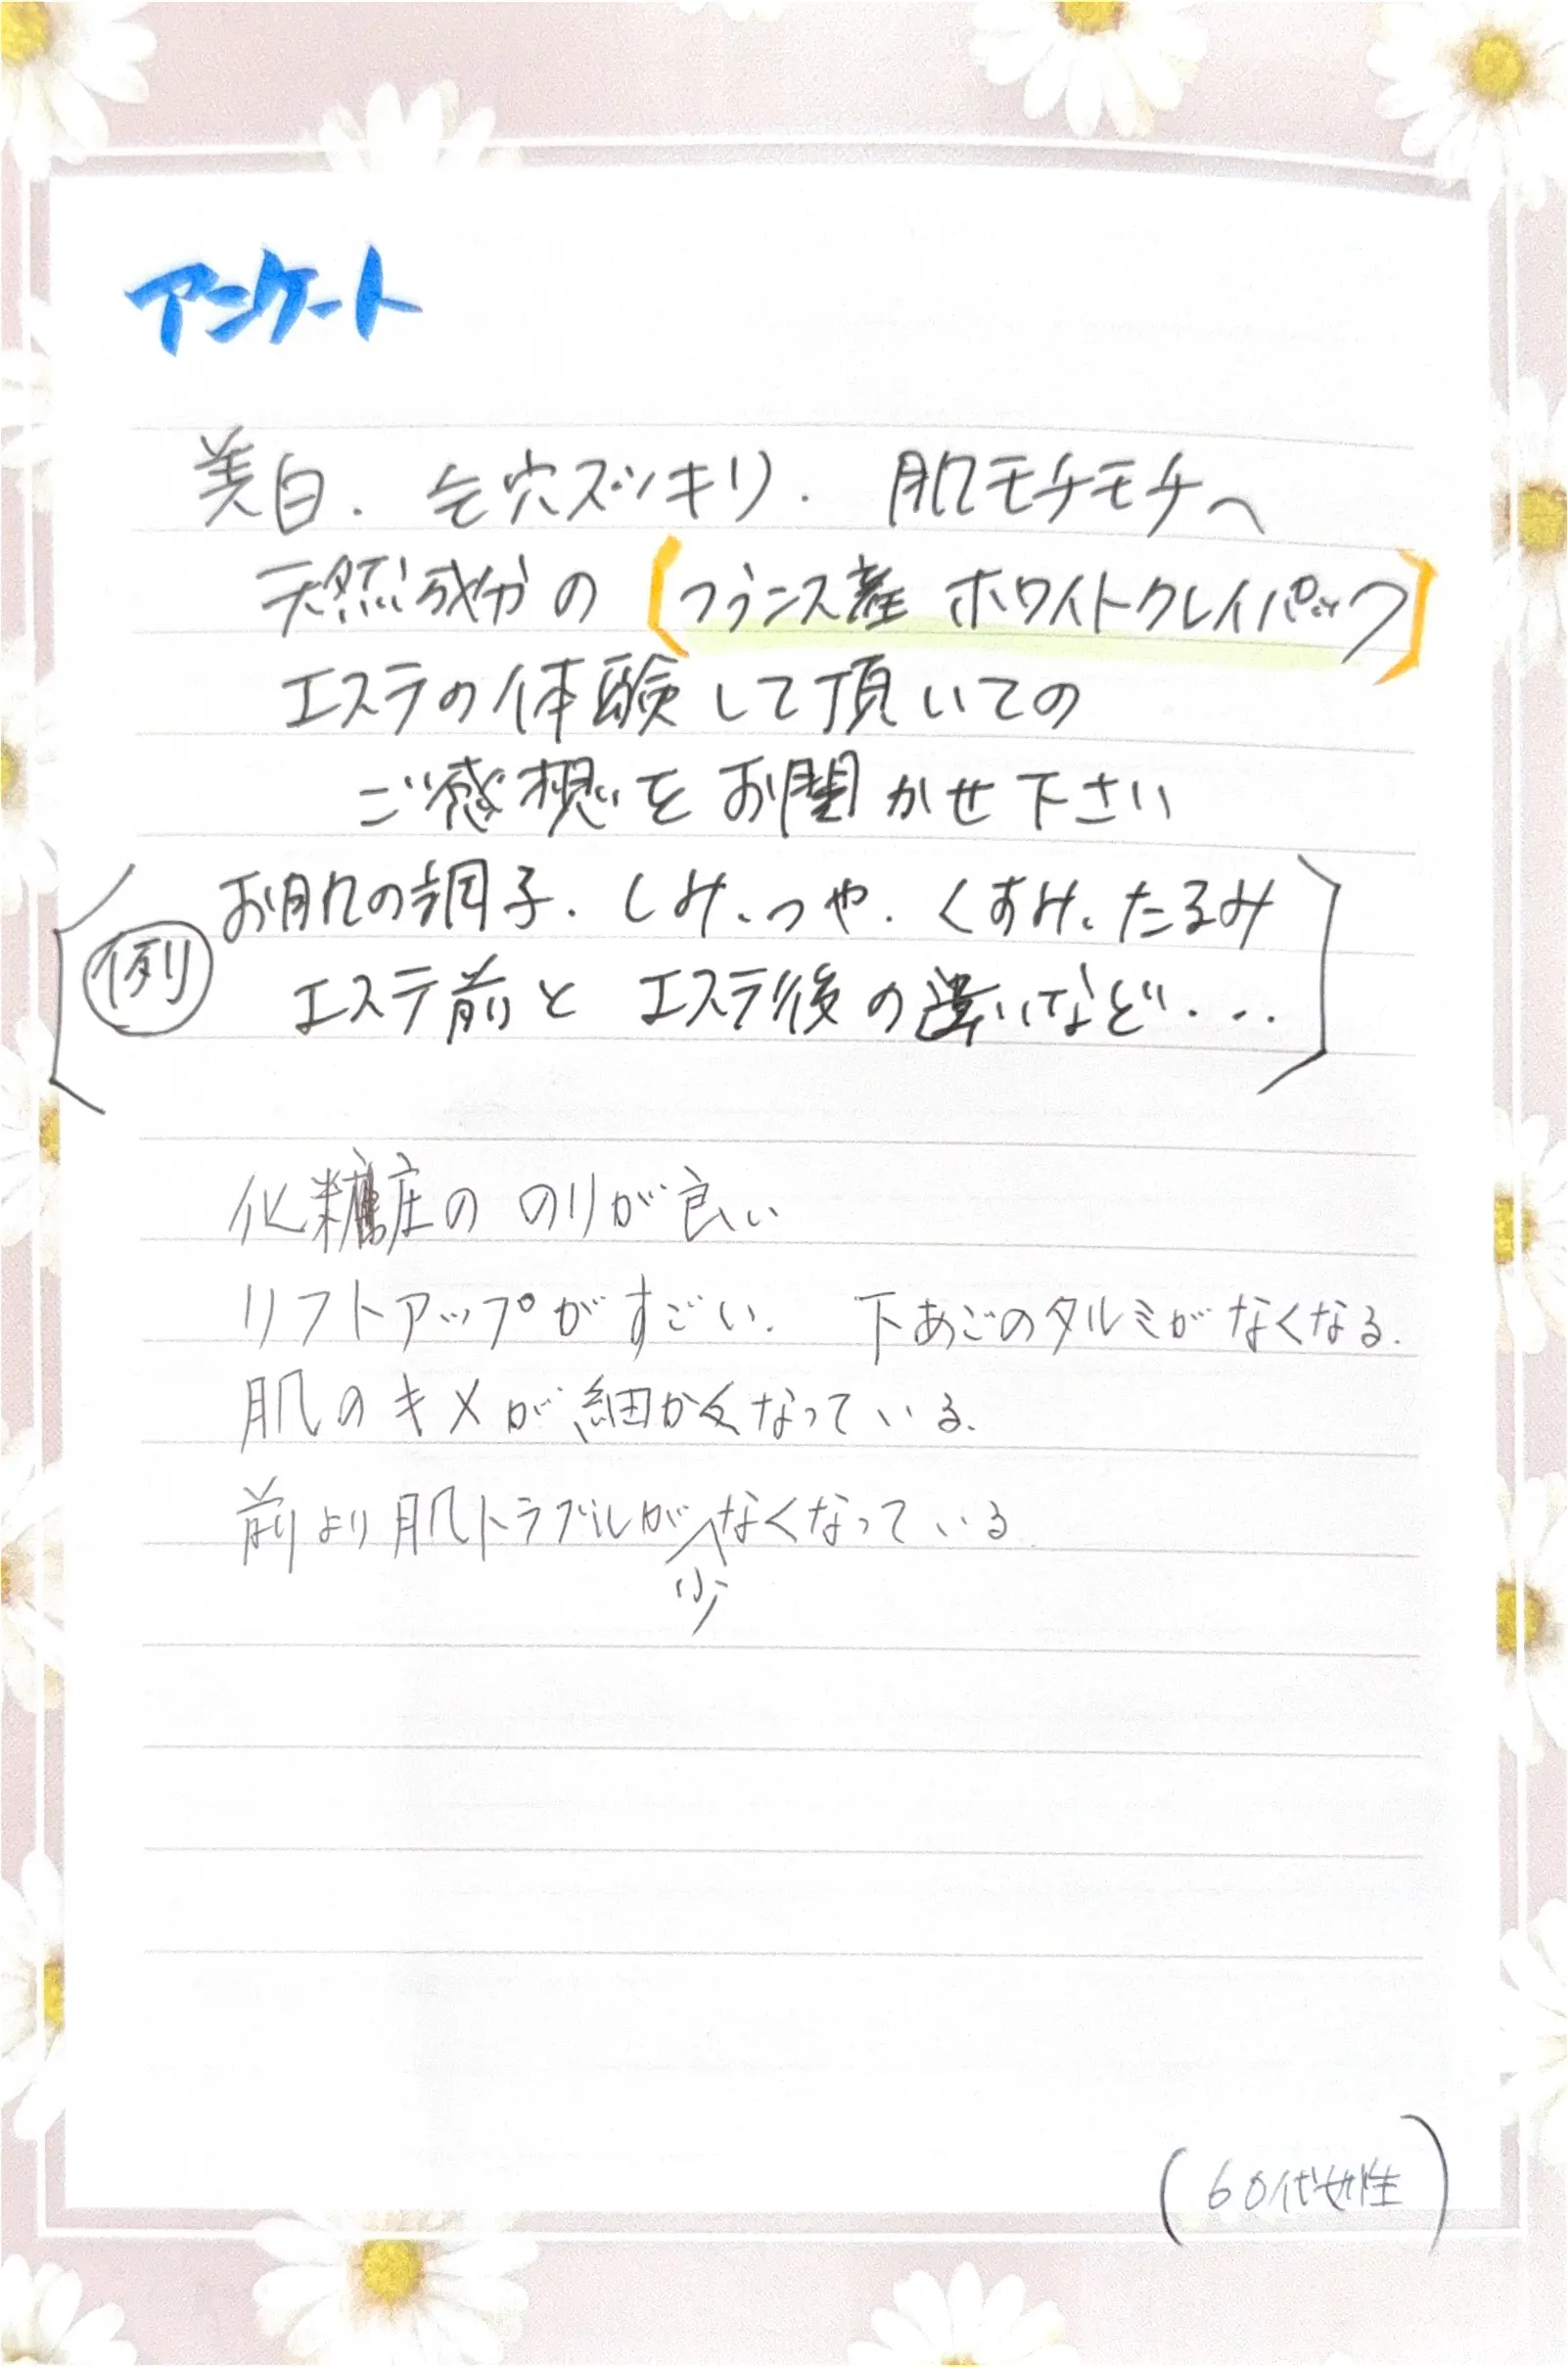 アンケート
美白. 毛穴スッキリ. 肌モチモチへ
天然成分の [フランス産 ホワイトクレイパック]
エステの体験して頂いての
ご感想をお聞かせ下さい
例 お肌の調子. しみ、つや. くすみ、たるみ
エステ前と エステ後の違いなど...
化粧の のりが良い
リフトアップがすごい. 下あごのタルミがなくなる.
肌のキメが細かくなっている.
前より肌トラブルが少なくなっている
(60代女性)